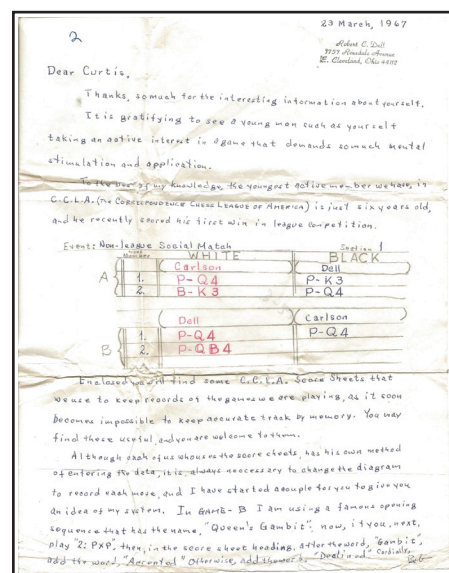 2
23 March, 1967
Robert C. Dell
3757 Rosedale Avenue
E. Cleveland, Ohio 44112
Dear Curtis.
Thanks, somuch for the interesting information about yourself.
It is gratifying to see a young man such as yourself
taking an active interest in a game that demands somuch mental
stimulation and application.
To the best of my knowledge, the youngest active member we have, in
C.C.L.A. (THE CORRESPONDENCE CHESS LEAGUE OF AMERICA) is just six years old,
and he recently scored his first win in league competition.
Event: Non-league Social Match Section 1
WHITE BLACK
Carlson Dell
A 1. P-Q4 P-K3
2. B-K3 P-Q4
Dell Carlson
1. P-Q4 P-Q4
B 2. P-QB4
Enclosed you will find some C.C.L.A. Score Sheets that
we use to keep records of the games we are playing, as it soon
becomes impossible to keep accurate track by memory. You may
find these useful, and you are welcome to them.
Although each of us who uses the score sheets, has his own method
of entering the data, it is, always neccesary to change the diagram
to record each move, and I have started a couple for you to give you
an idea of my system. In GAME-B I am using a famous opening
sequence that has the name, "Queen's Gambit". now, if you, next,
play "2; PXP", then, in the score sheet heading, after the word, "Gambit",
add the word, "Accepted" Otherwise, add the word, "Declined" Cordially,